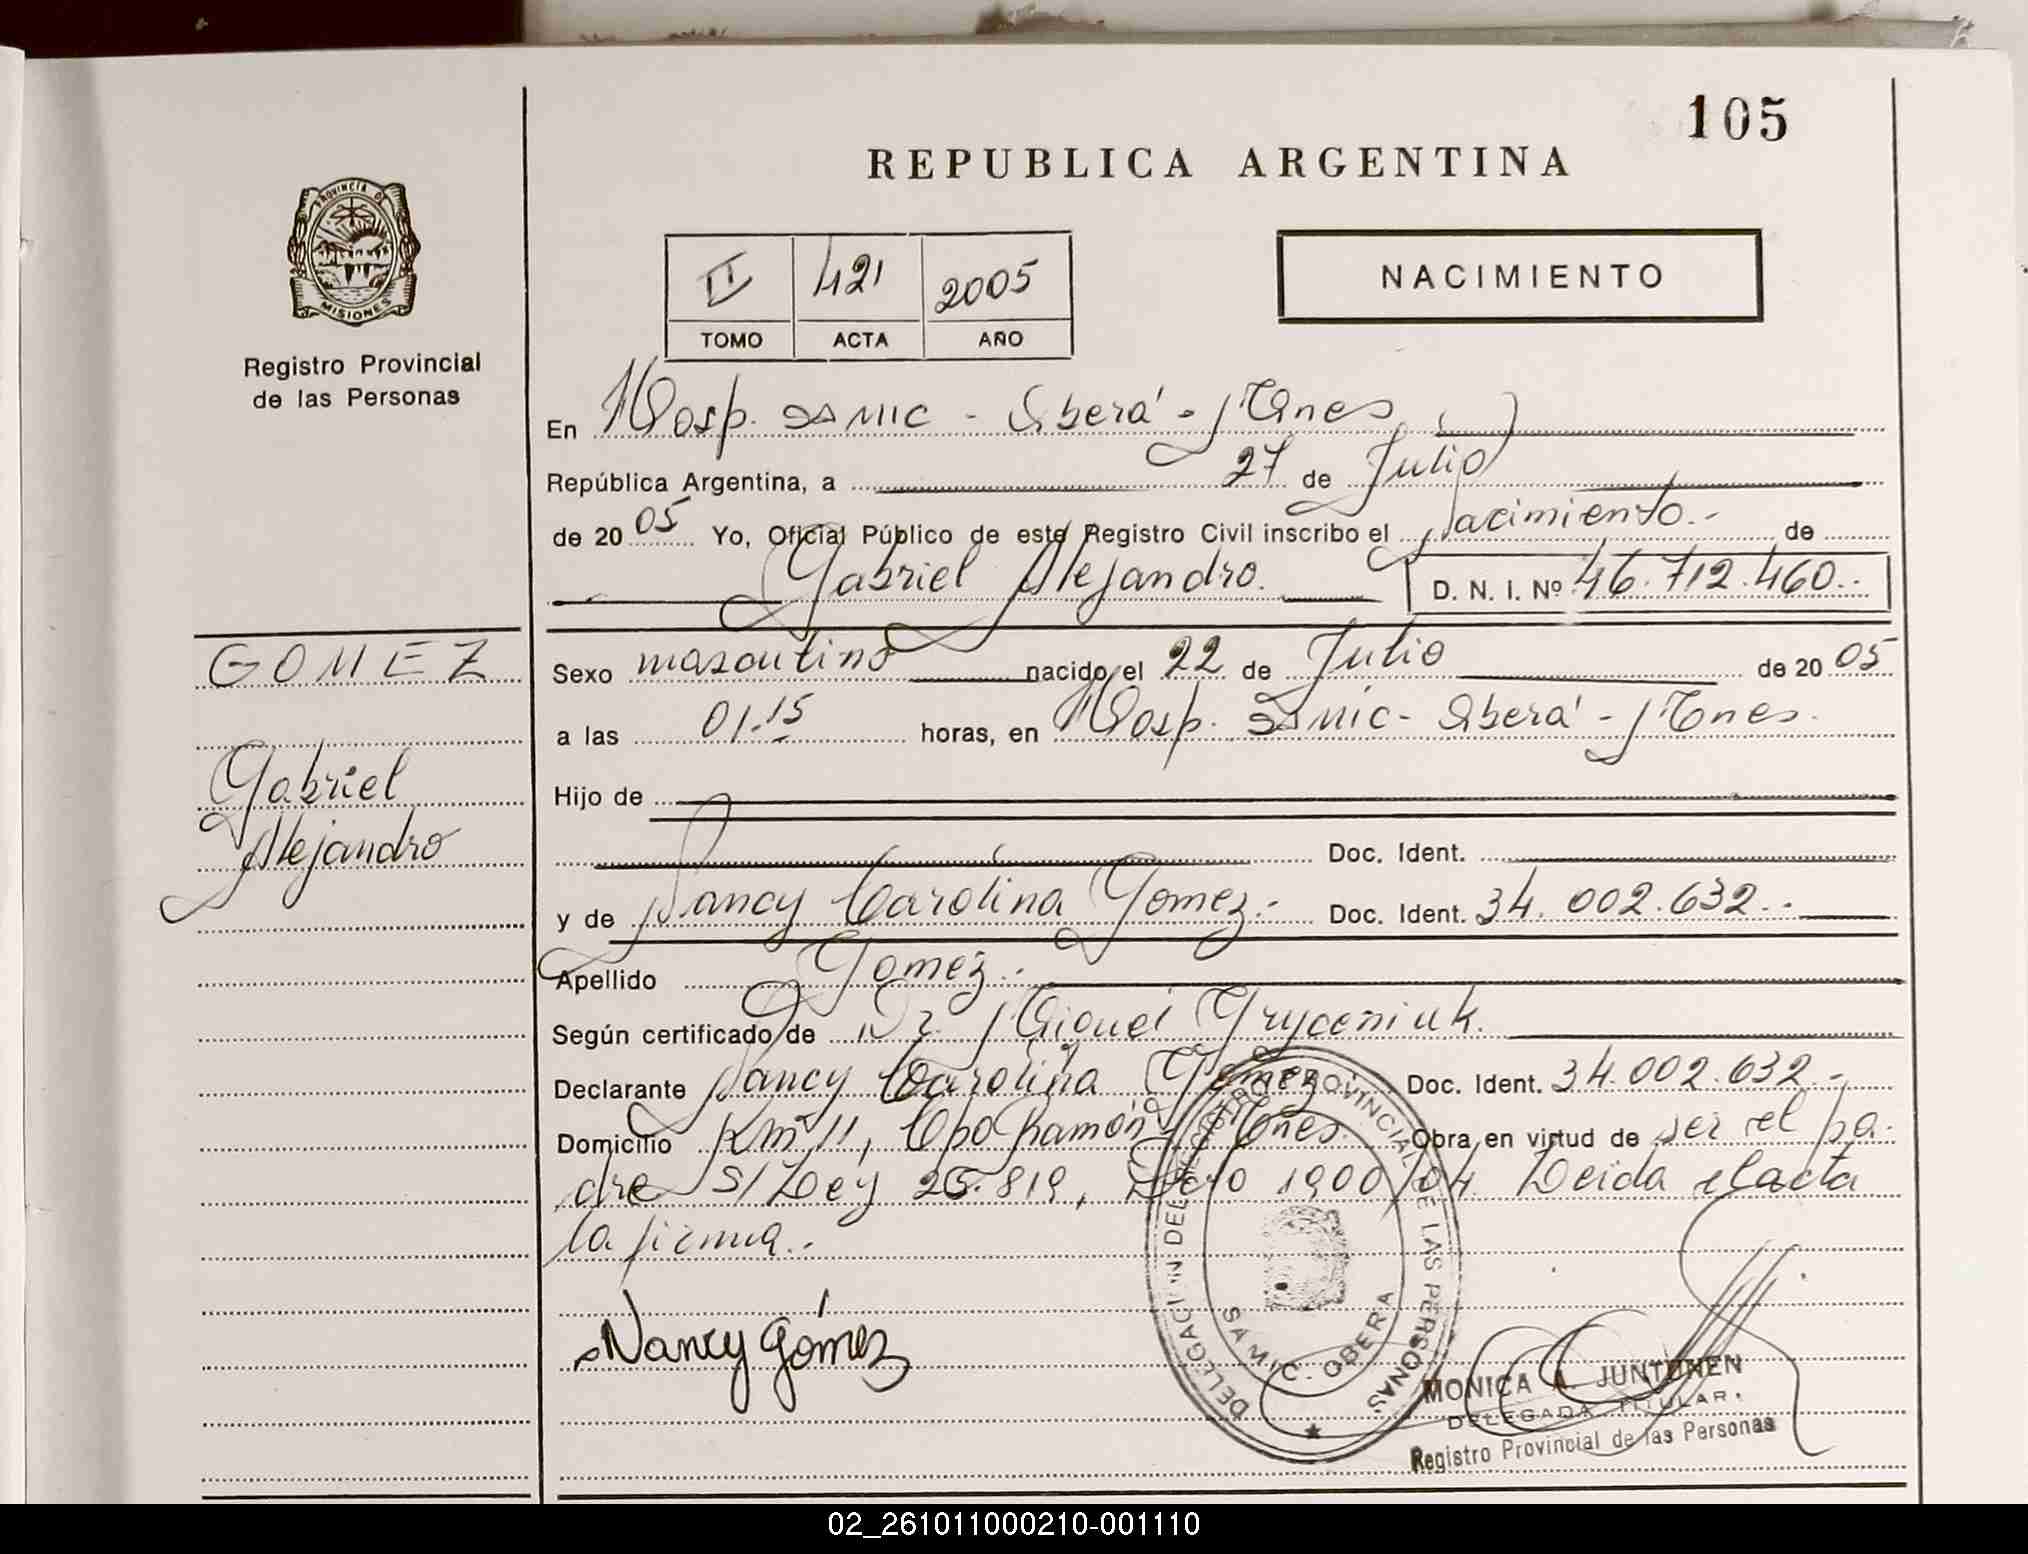 105
REPUBLICA ARGENTINA
PROVINCIA DE
MISIONES
Registro Provincial
de las Personas
II 421 2005
TOMO ACTA AÑO
NACIMIENTO
En Hosp. SAMIC - Oberá - Mnes
República Argentina, a 27 de Julio
de 2005 Yo, Oficial Público de este Registro Civil inscribo el Nacimiento.- de
Gabriel Alejandro. D. N. I. Nº 46.712.460..
GOMEZ
Gabriel
Alejandro
Sexo masculino nacido el 22 de Julio de 2005
a las 01.15 horas, en Hosp. SAMIC - Oberá - Mnes.
Hijo de
Doc. Ident.
y de Nancy Carolina Gomez.- Doc. Ident. 34.002.632..
Apellido Gomez..
Según certificado de Dr. Miguel Gryceniuk.
Declarante Nancy Carolina Gomez Doc. Ident. 34.002.632.-
Domicilio Km 11, Cpo Ramón Mnes. Obra en virtud de ser el pa-
dre S/Ley 25.819, Dcto 1900/04. Leida el acta
la firma..
Nancy Gómez
DELEGACION DEL REGISTRO PROVINCIAL DE LAS PERSONAS
SAMIC. OBERA
MONICA A. JUNTUNEN
DELEGADA TITULAR
Registro Provincial de las Personas
02_261011000210-001110